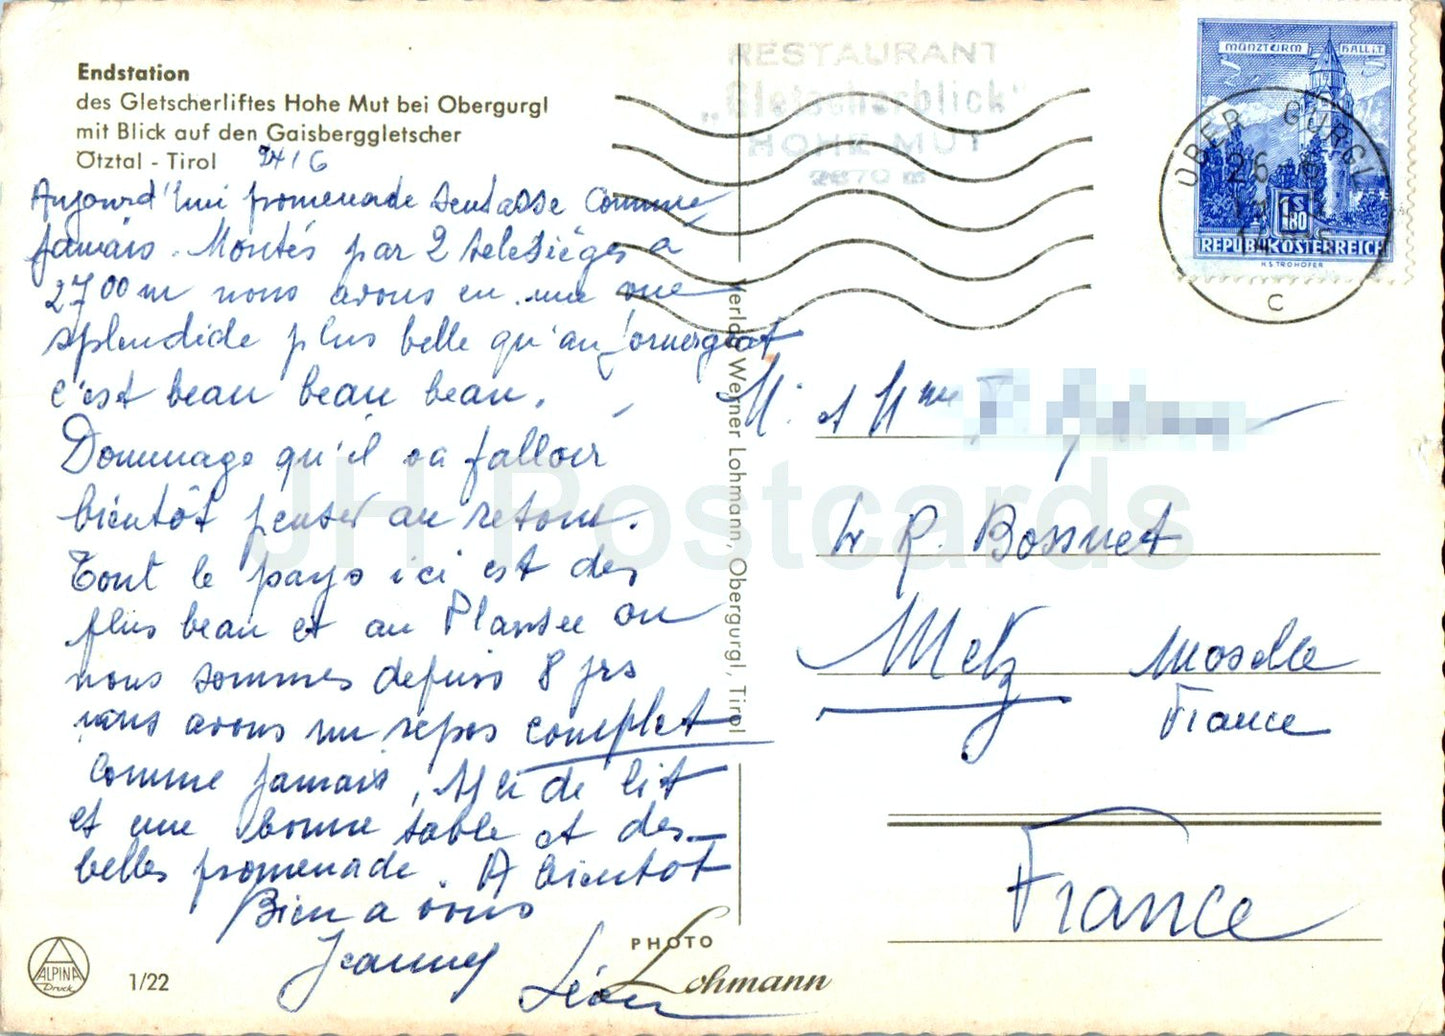 Endstation
des Gletscherliftes Hohe Mut bei Obergurgl
mit Blick auf den Gaisberggletscher
Ötztal - Tirol
Aujourd'hui promenade sentasse Comme
Jamais. Montés par 2 telesièges à
2700 m nous avons eu une vue
splendide plus belle qu'au Jornergrat
c'est beau beau beau.
Dommage qu'il va falloir
bientôt penser au retour.
Tout le pays ici est des
plus beau et au Plansee ou
nous sommes depuis 8 jrs
nous avons un repos complet
Comme Jamais, de lit
et une bonne table et des
belles promenade. A bientôt
Bien a vous
Jeanny
Léon
RESTAURANT
„Gletscherblick"
HOHE MUT
2670 m
MÜNZTURM HALL i.T.
S 1.80
REPUBLIK ÖSTERREICH
H. STROHOFER
OBER GURGL
26
C
Verlag Werner Lohmann, Obergurgl, Tirol
M. et Mme
R. Bossuet
Metz Moselle
France
France
PHOTO
Lohmann
ALPINA
Druck
1/22
JH Postcards